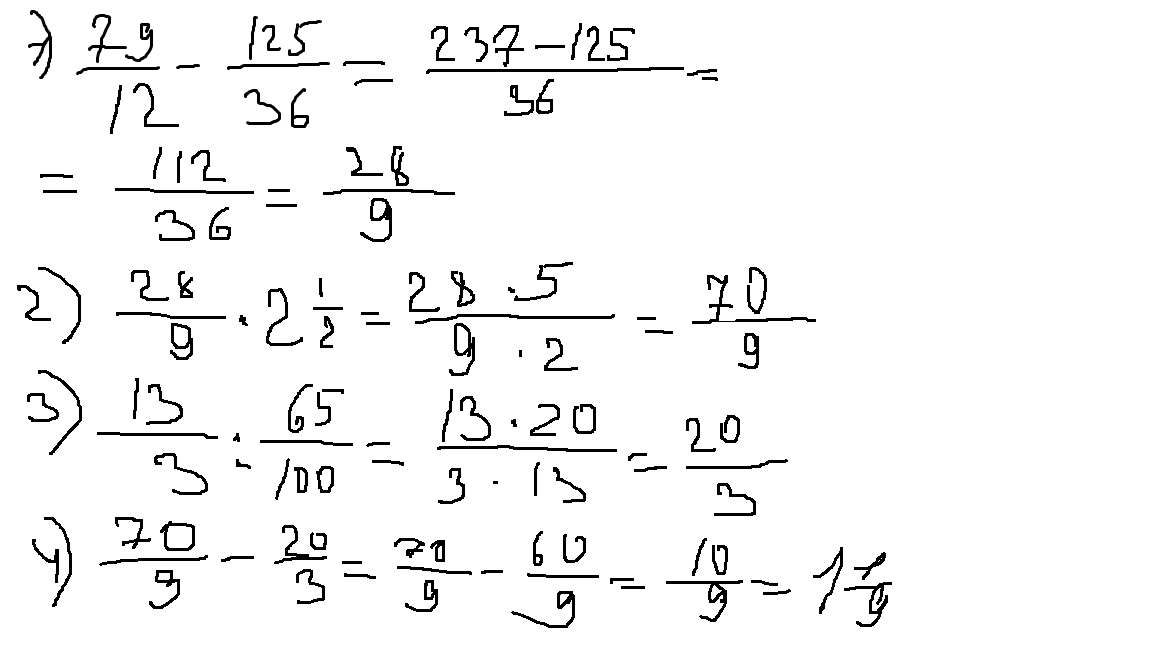 1) 79/12 - 125/36 = (237-125)/36 =
= 112/36 = 28/9
2) 28/9 · 2 1/2 = (28·5)/(9·2) = 70/9
3) 13/3 : 65/100 = (13·20)/(3·13) = 20/3
4) 70/9 - 20/3 = 70/9 - 60/9 = 10/9 = 1 1/9